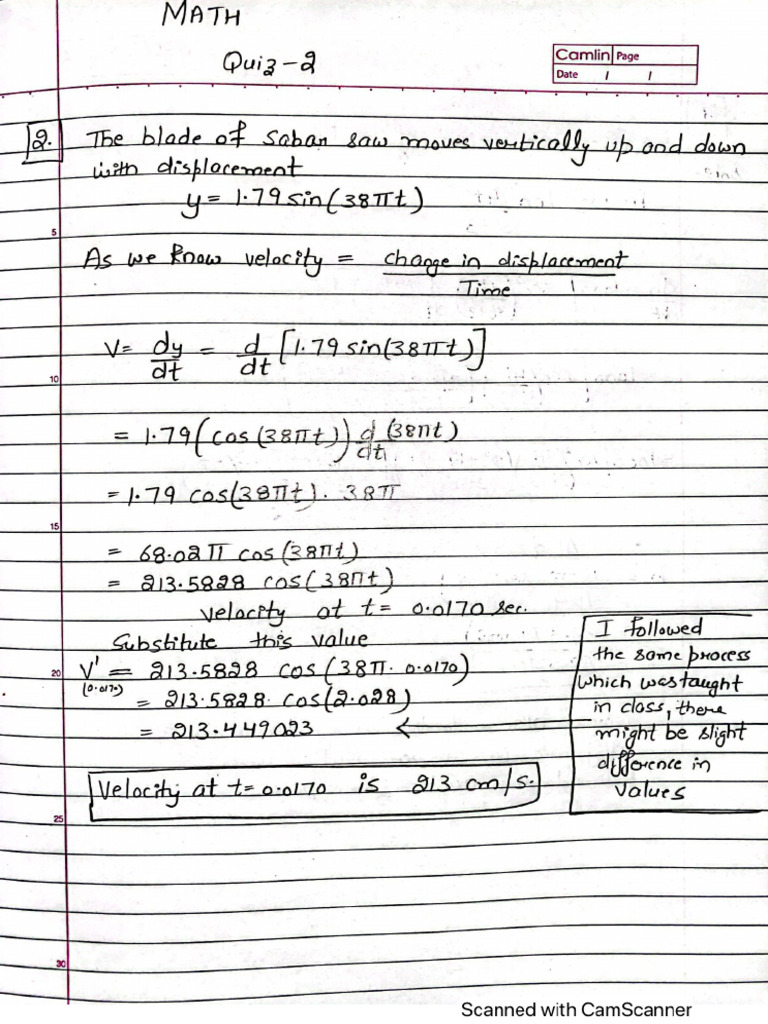 MATH
Quiz-2
Camlin Page
Date / /
2. The blade of saban saw moves vertically up and down
with displacement
y = 1.79 sin(38πt)
5
As we know velocity = change in displacement
Time
V = dy/dt = d/dt [1.79 sin(38πt)]
10
= 1.79 (cos(38πt)) d/dt (38πt)
= 1.79 cos(38πt). 38π
15
= 68.02π cos(38πt)
= 213.5828 cos(38πt)
velocity at t = 0.0170 sec.
Substitute this value
20
V'(0.0170) = 213.5828 cos(38π. 0.0170)
= 213.5828. cos(2.028)
= 213.449023 ←
I followed
the same process
which was taught
in class, there
might be slight
difference in
values
Velocity at t=0.0170 is 213 cm/s.
25
30
Scanned with CamScanner